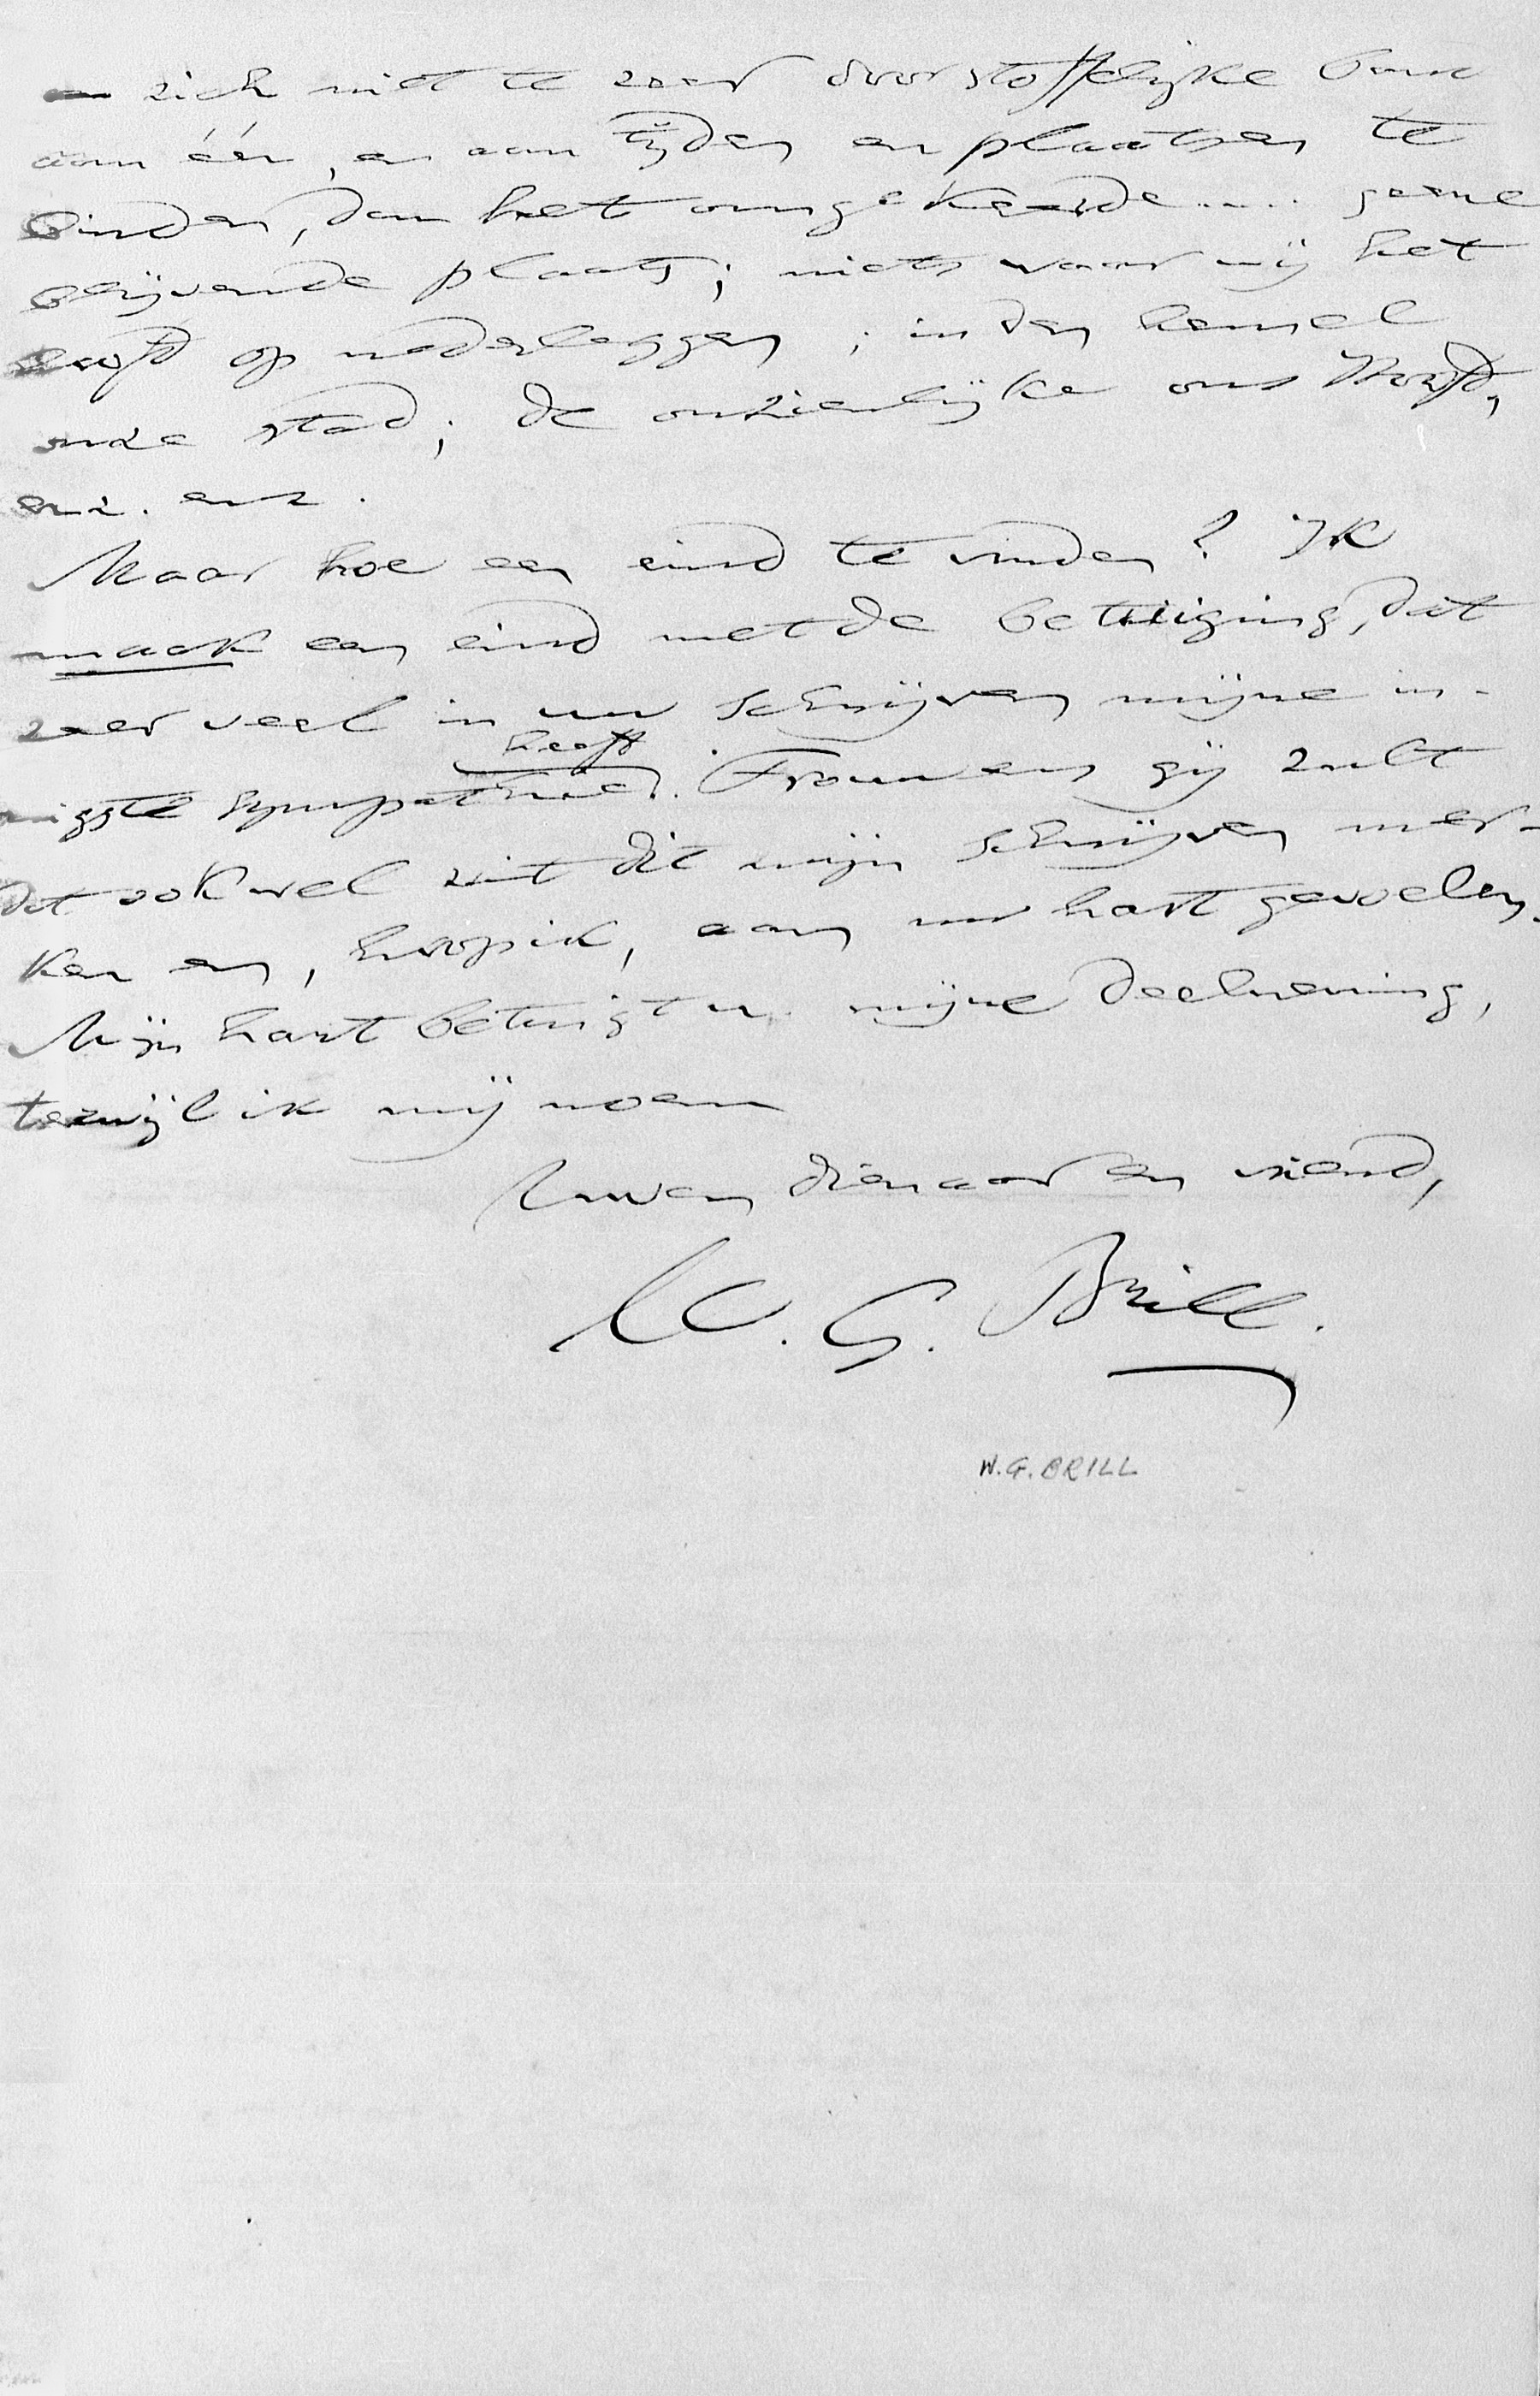 zich niet te zeer door stoffelijke band
aan één, en aan tijden en plaatsen te
binden, dan het omgekeerde.... geene
blijvende plaats; niets waar wij het
hoofd op nederleggen; in den hemel
onze stad; de onzienlijke ons Hoofd,
enz. enz.
Maar hoe een eind te vinden? Ik
maak een eind met de betuiging, dat
zeer veel in uw schrijven mijne in-
heeft
nigste sympathie. Trouwens gij zult
dat ook wel uit dit mijn schrijven mer-
ken en, hoop ik, aan uw hart gevoelen.
Mijn hart betuigt u mijne deelneming,
terwijl ik mij noem
Uwen dienaar en vriend,
W. G. Brill.
W.G. BRILL